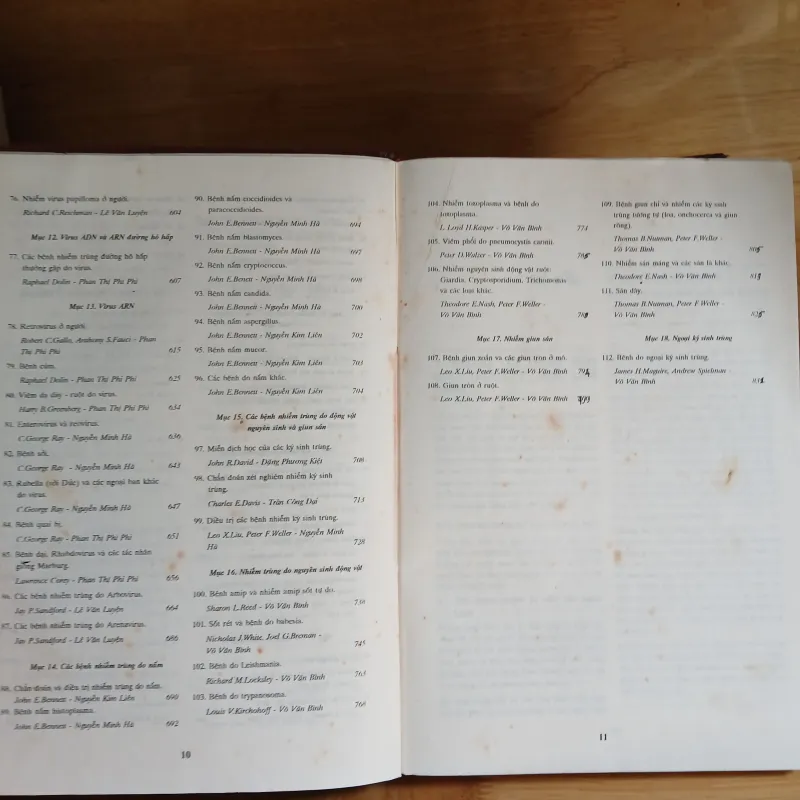 76. Nhiễm virus papilloma ở người.
Richard C.Reichman - Lê Văn Luyện 604
Mục 12. Virus ADN và ARN đường hô hấp
77. Các bệnh nhiễm trùng đường hô hấp
thường gặp do virus.
Raphael Dolin - Phan Thị Phi Phi 607
Mục 13. Virus ARN
78. Retrovirus ở người.
Robert C.Gallo, Anthony S.Fauci - Phan
Thị Phi Phi 615
79. Bệnh cúm.
Raphael Dolin - Phan Thị Phi Phi 625
80. Viêm dạ dày - ruột do virus.
Harry B.Greenberg - Phan Thị Phi Phi 634
81. Enterovirus và reovirus.
C.George Ray - Nguyễn Minh Hà 636
82. Bệnh sởi.
C.George Ray - Nguyễn Minh Hà 643
83. Rubella (sởi Đức) và các ngoại ban khác
do virus.
C.George Ray - Nguyễn Minh Hà 647
84. Bệnh quai bị.
C.George Ray - Phan Thị Phi Phi 651
85. Bệnh dại, Rhabdovirus và các tác nhân
giống Marburg.
Lawrence Corey - Phan Thị Phi Phi 656
86. Các bệnh nhiễm trùng do Arbovirus.
Jay P.Sandford - Lê Văn Luyện 664
87. Các bệnh nhiễm trùng do Arenavirus.
Jay P.Sandford - Lê Văn Luyện 686
Mục 14. Các bệnh nhiễm trùng do nấm
88. Chẩn đoán và điều trị nhiễm trùng do nấm.
John E.Bennett - Nguyễn Kim Liên 690
89. Bệnh nấm histoplasma.
John E.Bennett - Nguyễn Minh Hà 692
90. Bệnh nấm coccidioides và
paracoccidioides.
John E.Bennett - Nguyễn Minh Hà 694
91. Bệnh nấm blastomyces.
John E.Bennett - Nguyễn Minh Hà 697
92. Bệnh nấm cryptococcus.
John E.Benett - Nguyễn Minh Hà 698
93. Bệnh nấm candida.
John E.Bennett - Nguyễn Minh Hà 700
94. Bệnh nấm aspergillus.
John E.Bennett - Nguyễn Kim Liên 702
95. Bệnh nấm mucor.
John E.Bennett - Nguyễn Kim Liên 703
96. Các bệnh do nấm khác.
John E.Bennett - Nguyễn Kim Liên 704
Mục 15. Các bệnh nhiễm trùng do động vật
nguyên sinh và giun sán
97. Miễn dịch học của các ký sinh trùng.
John R.David - Đặng Phương Kiệt 708
98. Chẩn đoán xét nghiệm nhiễm ký sinh
trùng.
Charles E.Davis - Trần Công Đại 713
99. Điều trị các bệnh nhiễm ký sinh trùng.
Leo X.Liu, Peter F.Weller - Nguyễn Minh
Hà 728
Mục 16. Nhiễm trùng do nguyên sinh động vật
100. Bệnh amip và nhiễm amip sốt tự do.
Sharon L.Reed - Võ Văn Bình 739
101. Sốt rét và bệnh do babesia.
Nicholas J.White, Joel G.Breman -
Võ Văn Bình 745
102. Bệnh do Leishmania.
Richard M.Locksley - Võ Văn Bình 763
103. Bệnh do trypanosoma.
Louis V.Kirchohoff - Võ Văn Bình 768
10
104. Nhiễm toxoplasma và bệnh do
toxoplasma.
L. Loyd H.Kasper - Võ Văn Bình 774
105. Viêm phổi do pneumocystis carinii.
Peter D.Walzer - Võ Văn Bình
106. Nhiễm nguyên sinh động vật ruột:
Giardia, Cryptosporidium, Trichomonas
và các loại khác.
Theodore E.Nash, Peter F.Weller -
Võ Văn Bình
Mục 17. Nhiễm giun sán
107. Bệnh giun xoắn và các giun tròn ở mô.
Leo X.Liu, Peter F.Weller - Võ Văn Bình
108. Giun tròn ở ruột.
Leo X.Liu, Peter F.Weller - Võ Văn Bình
109. Bệnh giun chỉ và nhiễm các ký sinh
trùng tương tự (loa, onchocerca và giun
rồng).
Thomas B.Nunman, Peter F.Weller -
Võ Văn Bình
110. Nhiễm sán máng và các sán lá khác.
Theodore E.Nash - Võ Văn Bình
111. Sán dây.
Thomas B.Nunman, Peter F.Weller -
Võ Văn Bình
Mục 18. Ngoại ký sinh trùng
112. Bệnh do ngoại ký sinh trùng.
James H.Maguire, Andrew Spielman -
Võ Văn Bình
11